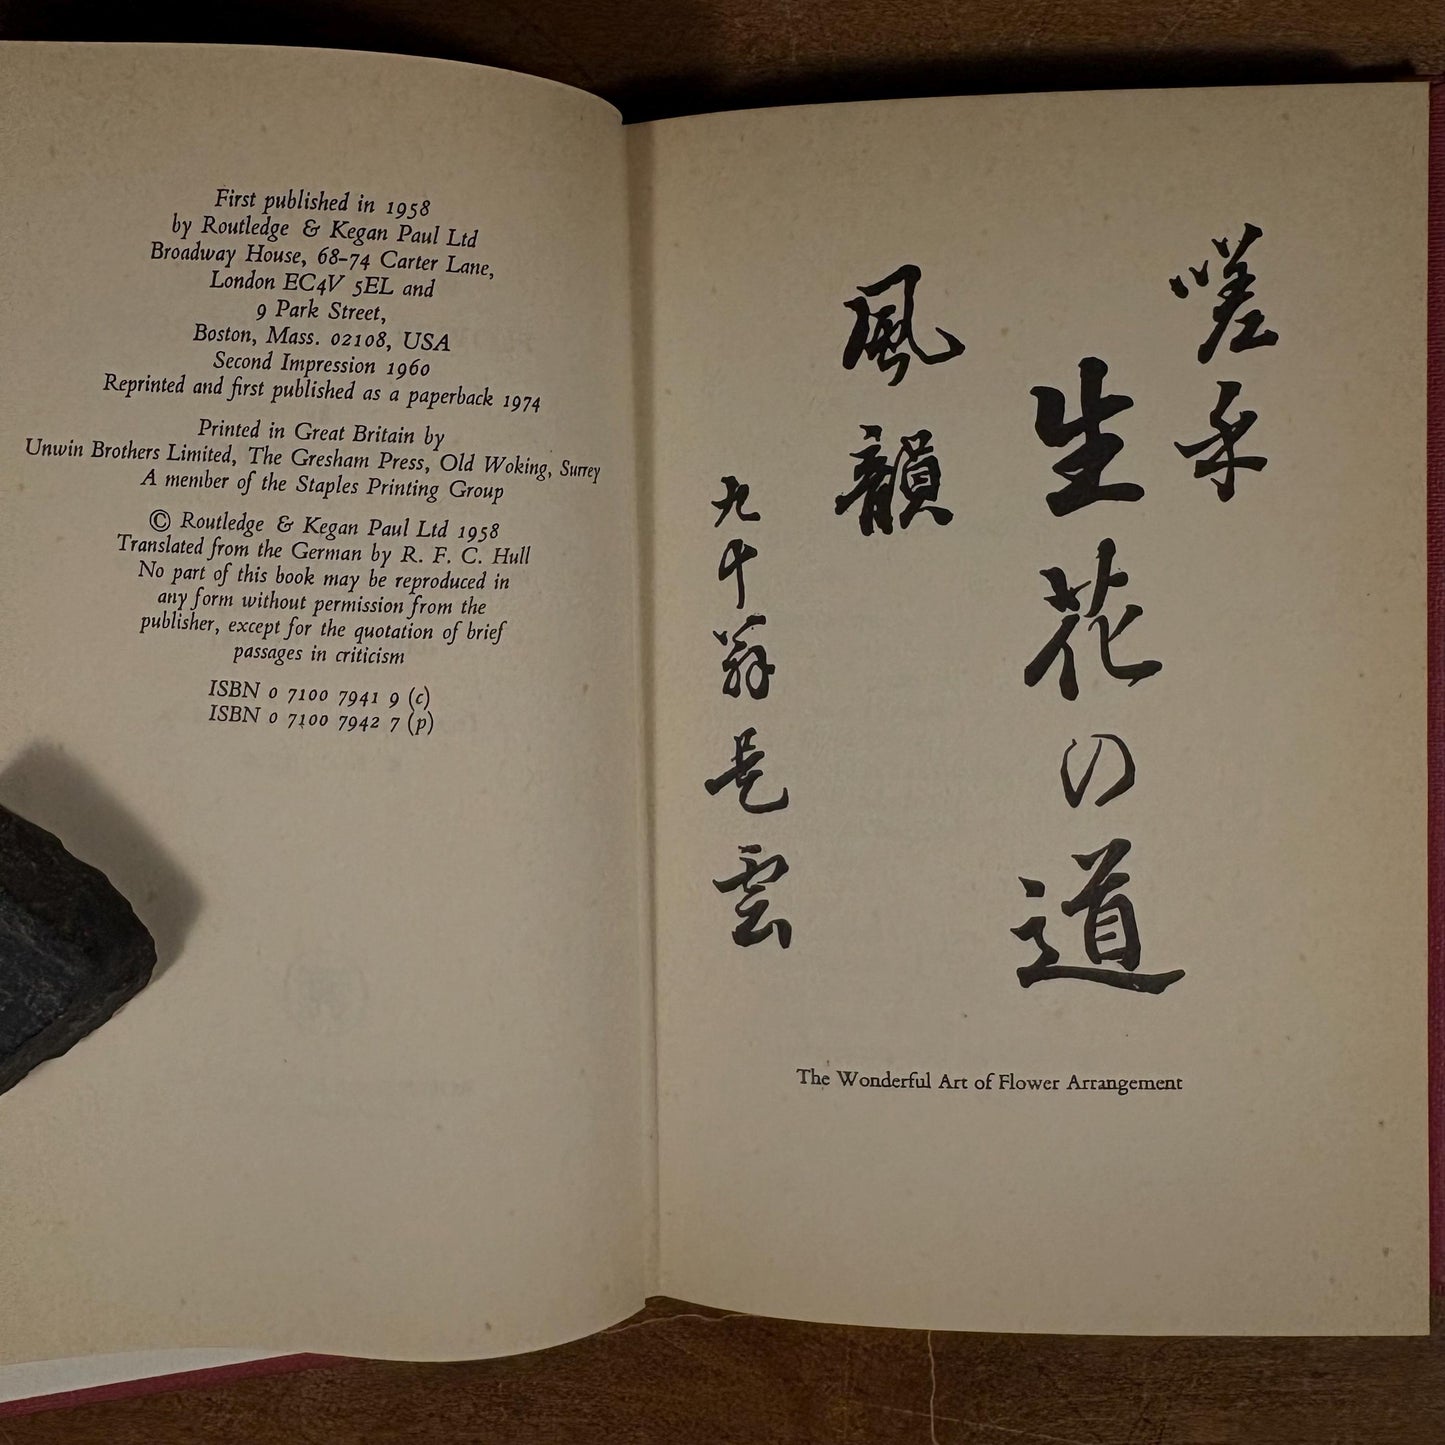 First published in 1958
by Routledge & Kegan Paul Ltd
Broadway House, 68–74 Carter Lane,
London EC4V 5EL and
9 Park Street,
Boston, Mass. 02108, USA
Second Impression 1960
Reprinted and first published as a paperback 1974
Printed in Great Britain by
Unwin Brothers Limited, The Gresham Press, Old Woking, Surrey
A member of the Staples Printing Group
© Routledge & Kegan Paul Ltd 1958
Translated from the German by R. F. C. Hull
No part of this book may be reproduced in
any form without permission from the
publisher, except for the quotation of brief
passages in criticism
ISBN 0 7100 7941 9 (c)
ISBN 0 7100 7942 7 (p)
嗟乎
生花の道
風韻
九十翁是雲
The Wonderful Art of Flower Arrangement